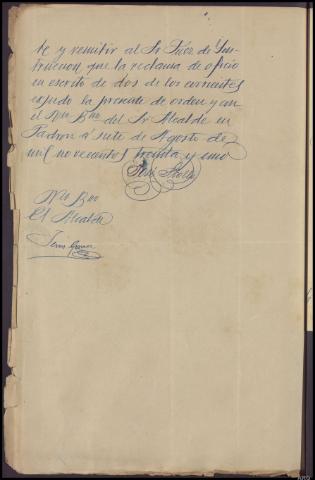 te y remitir al Sr Juez de Ins-
trucción, que la reclama de oficio
en escrito de dos de los corrientes
expido la presente de orden y con
el Vto Bno del Sr Alcalde en
Padrón a siete de Agosto de
mil novecientos treinta y uno
José
Vto Bno
El Alcalde
Jesús